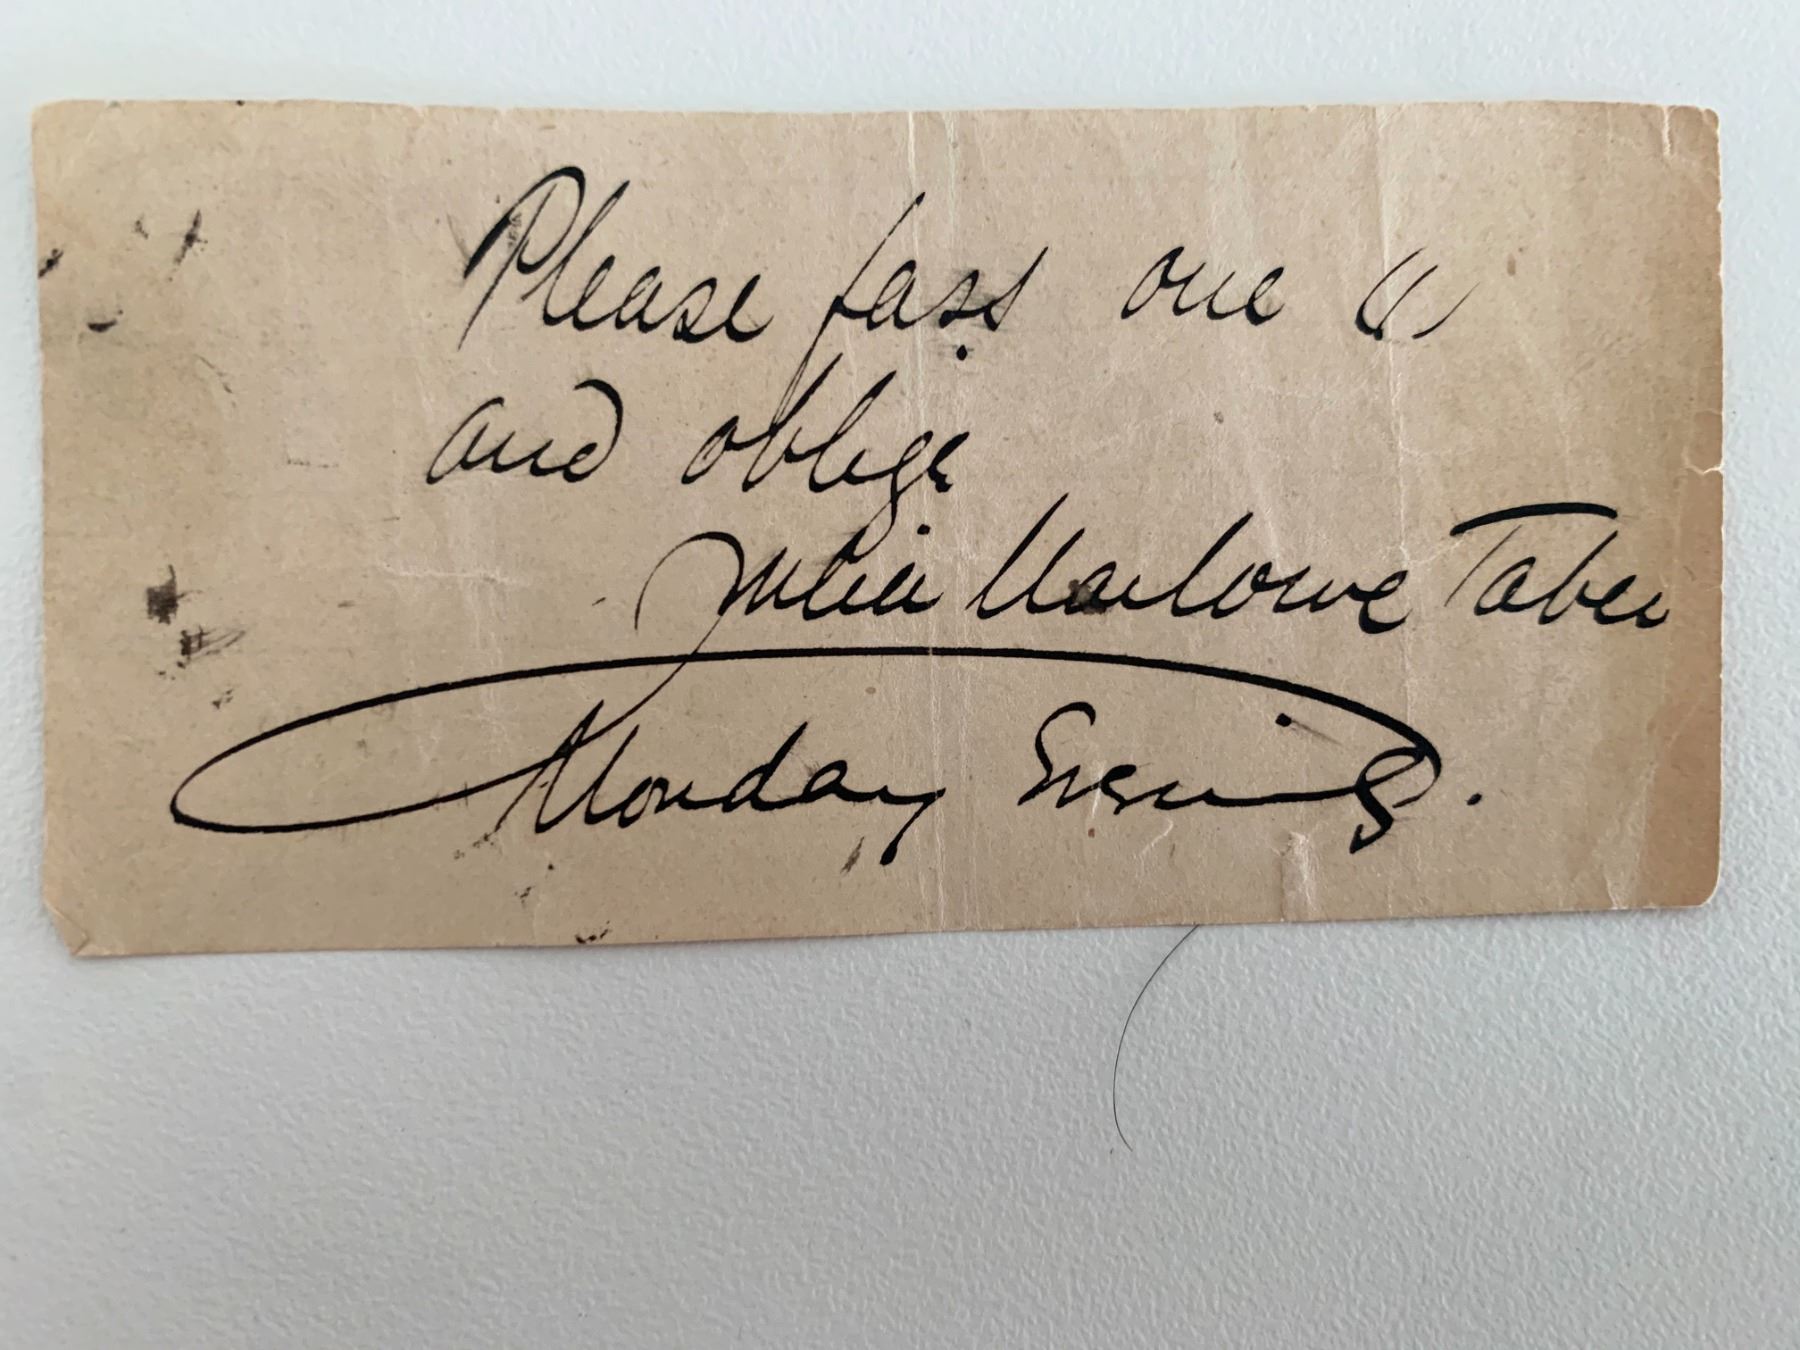 Please pass one (1)
and oblige
Julia Marlowe Taber
Monday Evening.